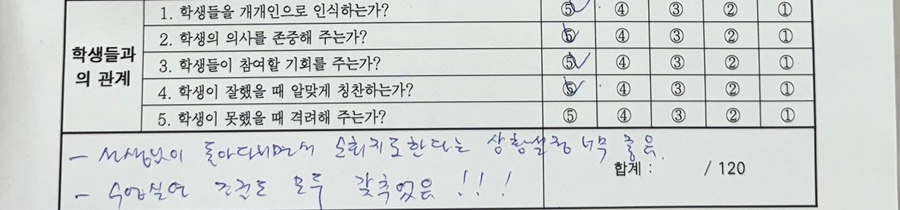 학생들과의 관계
1. 학생들을 개개인으로 인식하는가? ⑤ ④ ③ ② ①
2. 학생의 의사를 존중해 주는가? ⑤ ④ ③ ② ①
3. 학생들이 참여할 기회를 주는가? ⑤ ④ ③ ② ①
4. 학생이 잘했을 때 알맞게 칭찬하는가? ⑤ ④ ③ ② ①
5. 학생이 못했을 때 격려해 주는가? ⑤ ④ ③ ② ①
- 선생님이 돌아다니면서 순회지도한다는 상황설정 너무 좋음.
- 수업실연 조건도 모두 갖추었음!!!
합계 : / 120